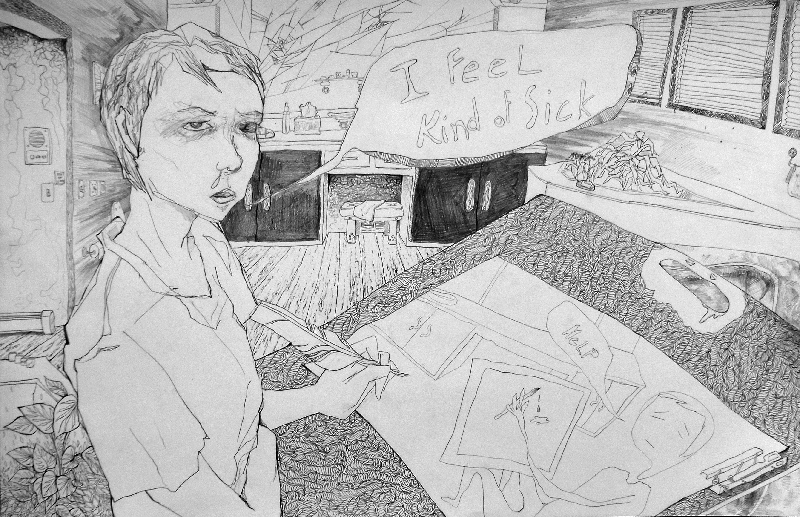 I feel
Kind of Sick
HELP